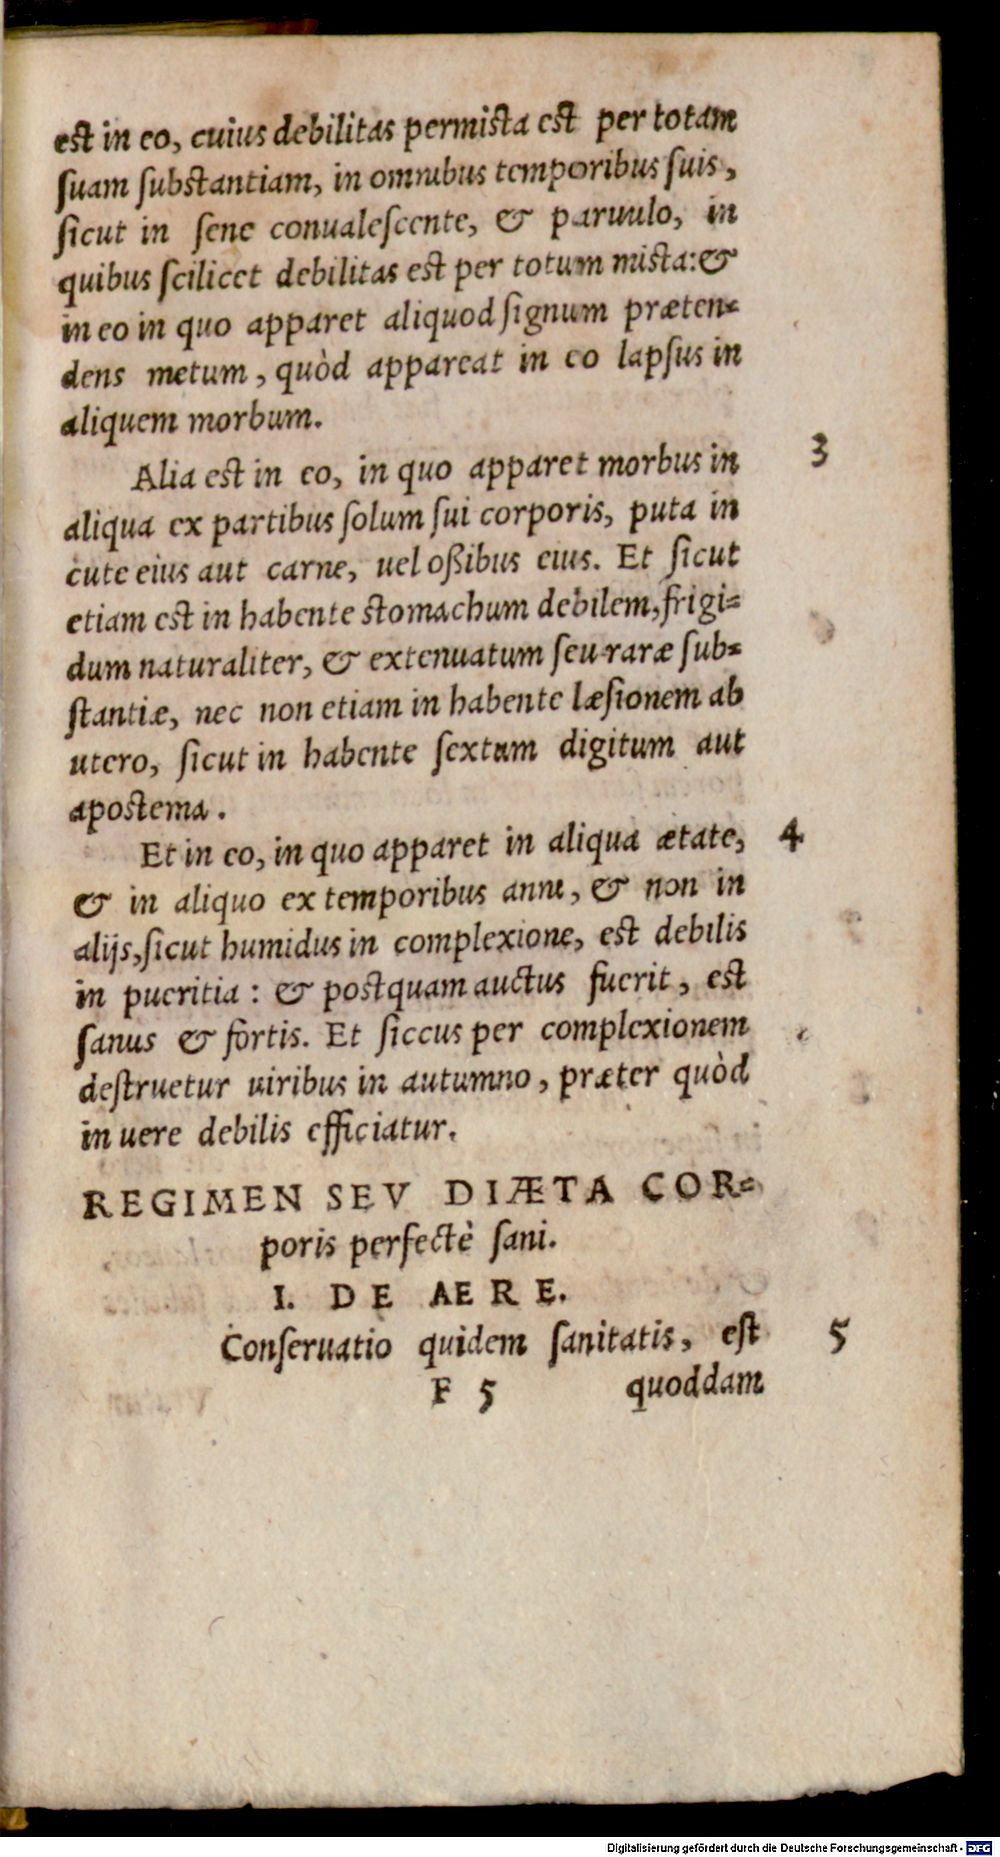 est in eo, cuius debilitas permista est per totam
ſuam ſubstantiam, in omnibus temporibus ſuis,
ſicut in ſene conualeſcente, & paruulo, in
quibus ſcilicet debilitas est per totum mista: &
in eo in quo apparet aliquod ſignum præten=
dens metum, quòd appareat in eo lapſus in
aliquem morbum.
Alia est in eo, in quo apparet morbus in 3
aliqua ex partibus ſolum ſui corporis, puta in
cute eius aut carne, uel oßibus eius. Et ſicut
etiam est in habente stomachum debilem, frigi=
dum naturaliter, & extenuatum ſeu raræ ſub=
ſtantiæ, nec non etiam in habente læſionem ab
utero, ſicut in habente ſextum digitum aut
apostema.
Et in eo, in quo apparet in aliqua ætate, 4
& in aliquo ex temporibus anni, & non in
alijs, ſicut humidus in complexione, est debilis
in pueritia: & postquam auctus fuerit, est
ſanus & fortis. Et ſiccus per complexionem
deſtruetur uiribus in autumno, præter quòd
in uere debilis efficiatur.
REGIMEN SEV DIÆTA COR=
poris perfectè ſani.
I. DE AERE.
Conſeruatio quidem ſanitatis, eſt 5
F 5 quoddam
Digitalisierung gefördert durch die Deutsche Forschungsgemeinschaft - DFG